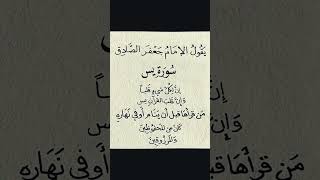 يَقُولُ الإِمَامُ جَعْفَرَ الصَّادِق
سُورَة يس
إِنَّ لِكُلِّ شَيْءٍ قَلْبَاً
وَإِنَّ قَلْبَ القُرْآنِ يس
مَن قَرَأَهَا قَبلَ أَن يَنَام أَوفِي نَهَارِهِ
كَانَ مِنَ المَحْفُوظِينَ
وَالمَرْزُوقِينَ